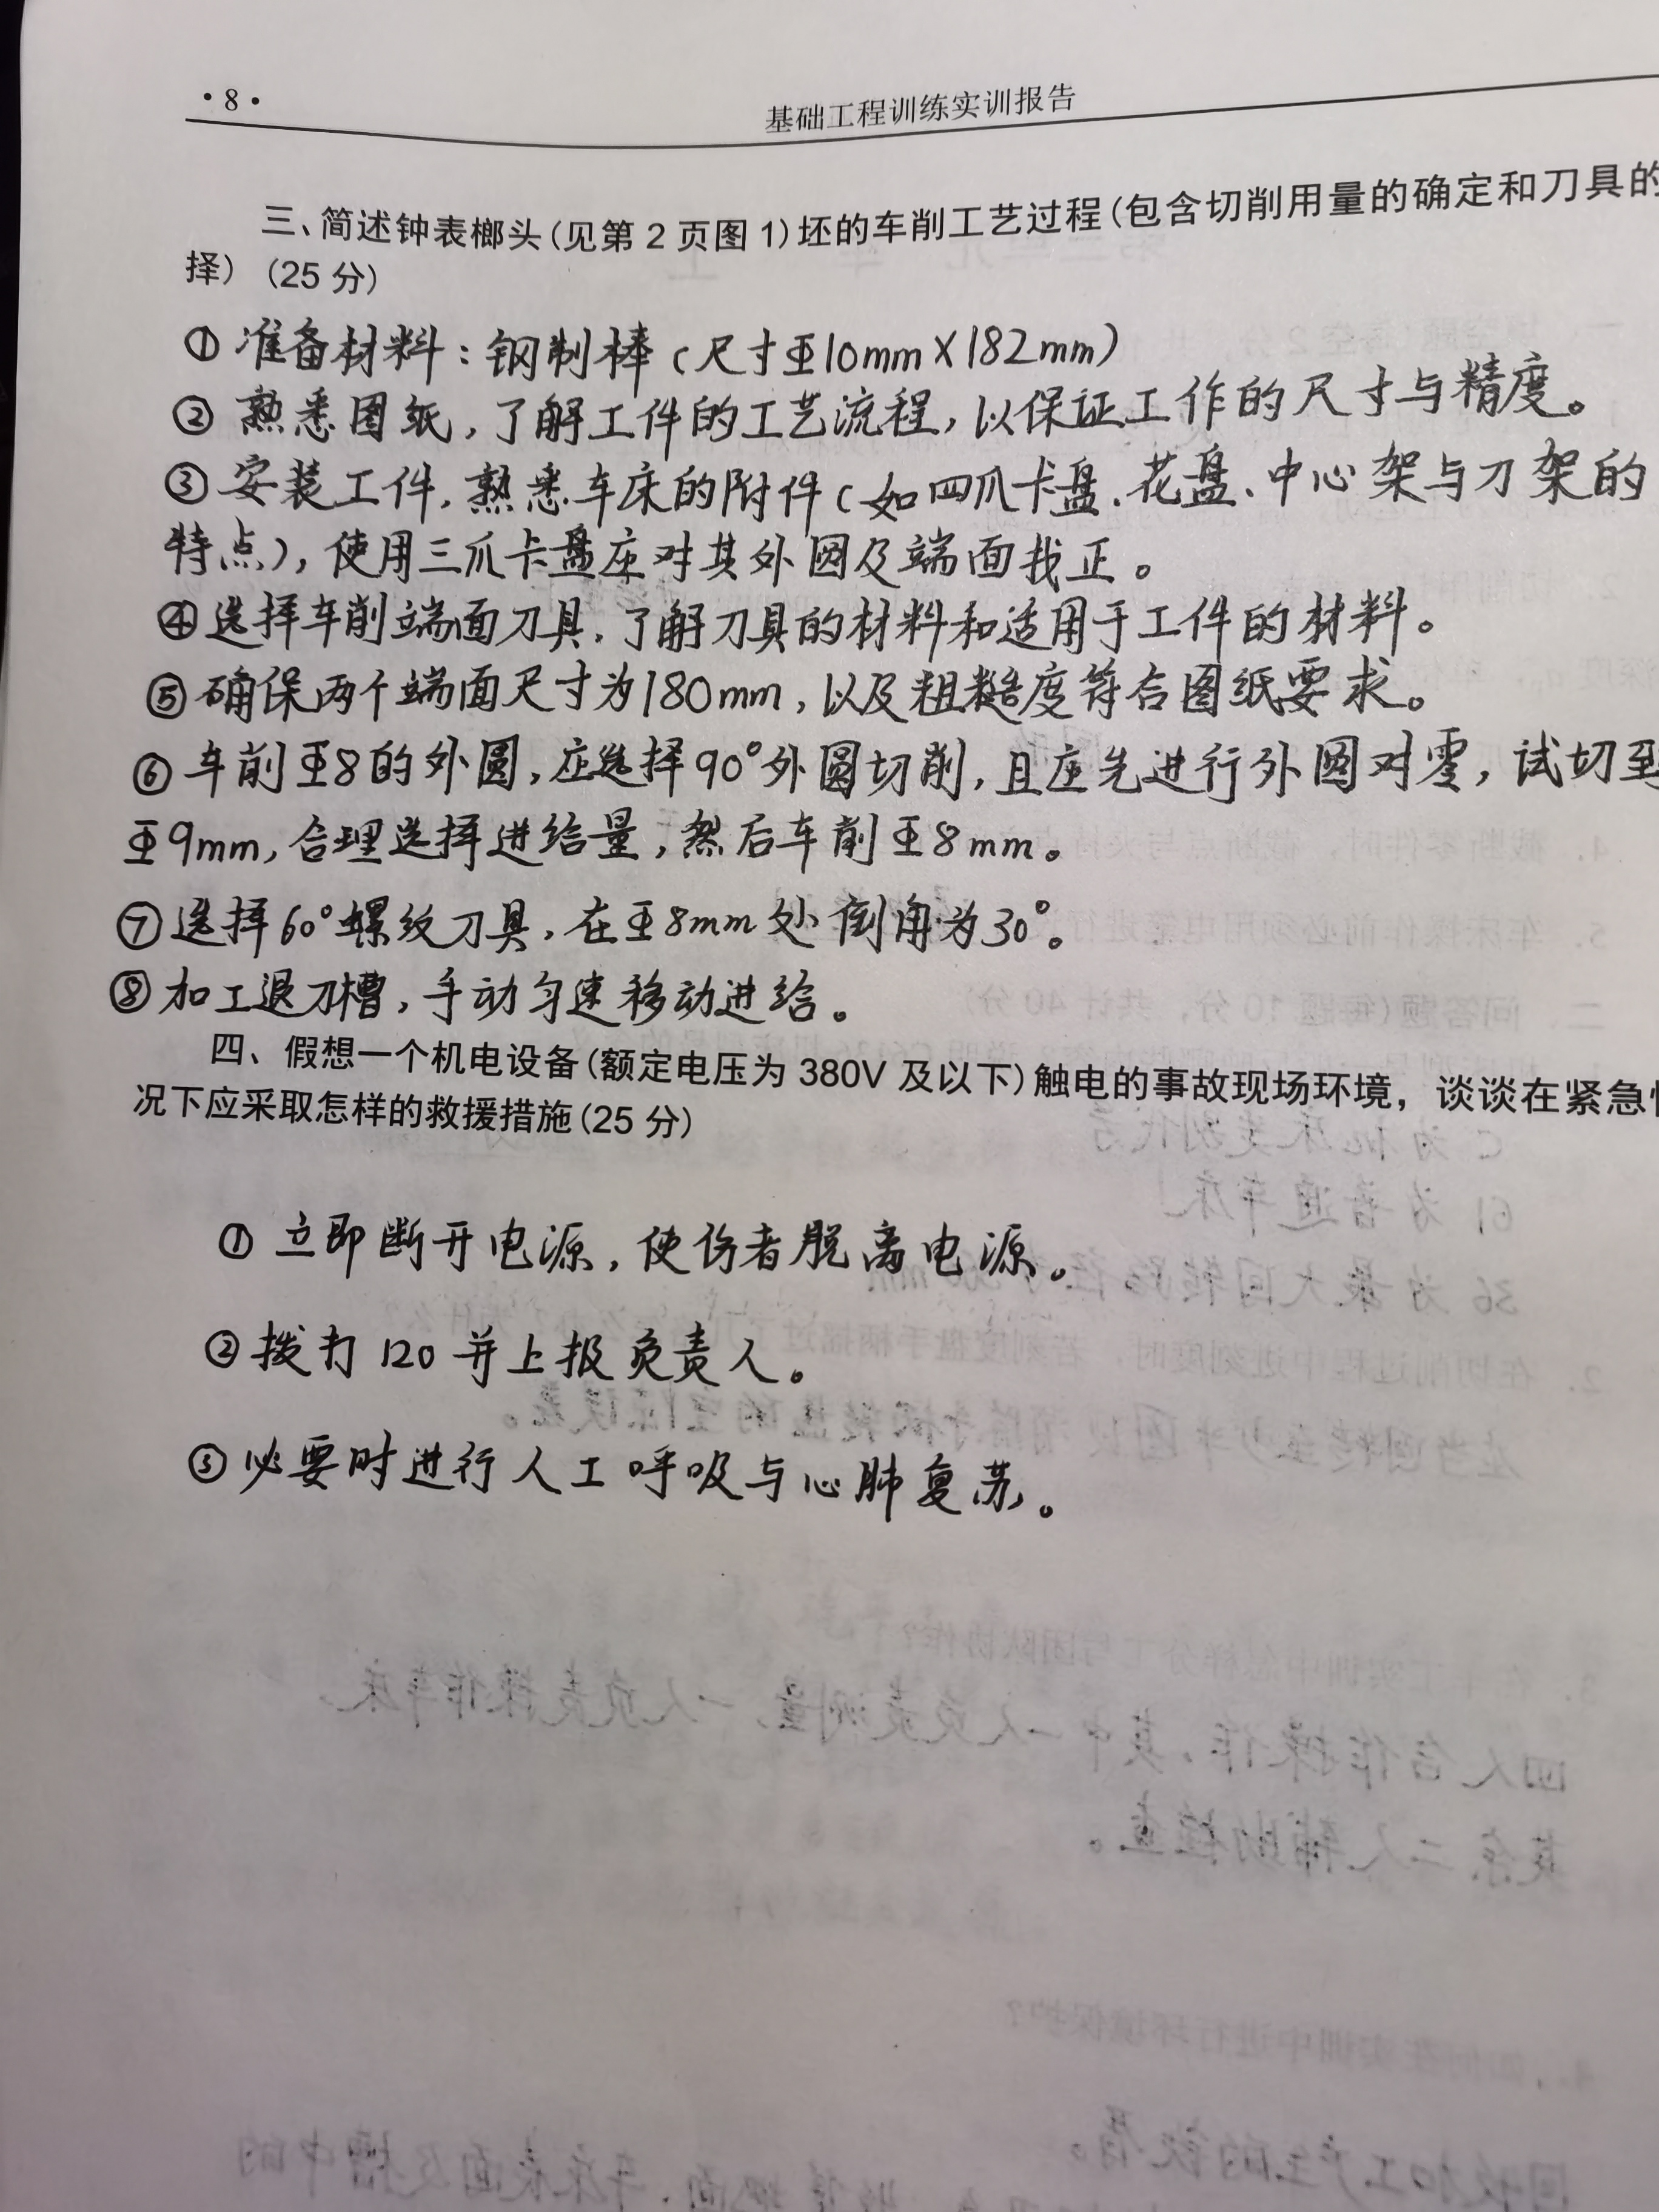 ·8·
基础工程训练实训报告
三、简述钟表榔头(见第2页图1)坯的车削工艺过程(包含切削用量的确定和刀具的
择) (25分)
① 准备材料：钢制棒（尺寸至10mm×182mm）
② 熟悉图纸，了解工件的工艺流程，以保证工作的尺寸与精度。
③ 安装工件，熟悉车床的附件（如四爪卡盘、花盘、中心架与刀架的
特点），使用三爪卡盘应对其外圆及端面找正。
④选择车削端面刀具，了解刀具的材料和适用于工件的材料。
⑤ 确保两个端面尺寸为180mm，以及粗糙度符合图纸要求。
⑥ 车削至8的外圆，应选择90°外圆切削，且应先进行外圆对零，试切到
至9mm，合理选择进给量，然后车削至8mm。
⑦选择60°螺纹刀具，在至8mm处倒角为30°。
⑧ 加工退刀槽，手动匀速移动进给。
四、假想一个机电设备(额定电压为380V及以下)触电的事故现场环境，谈谈在紧急
况下应采取怎样的救援措施(25分)
① 立即断开电源，使伤者脱离电源。
② 拨打120并上报负责人。
③ 必要时进行人工呼吸与心肺复苏。